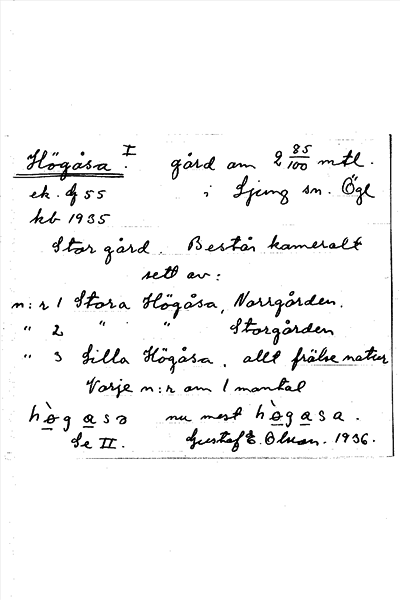 Högåsa I. gård om 2 85/100 mtl.
ek. bl 55 i Ljung sn. Ögl
kb 1935
Stor gård. Består kameralt
sett av:
n:r 1 Stora Högåsa, Norrgården.
" 2 " " Storgården
" 3 Lilla Högåsa. allt frälse natur
Varje n:r om 1 mantal
hògasa nu mest hògasa.
Se II. Gustaf E. Olsson. 1936.